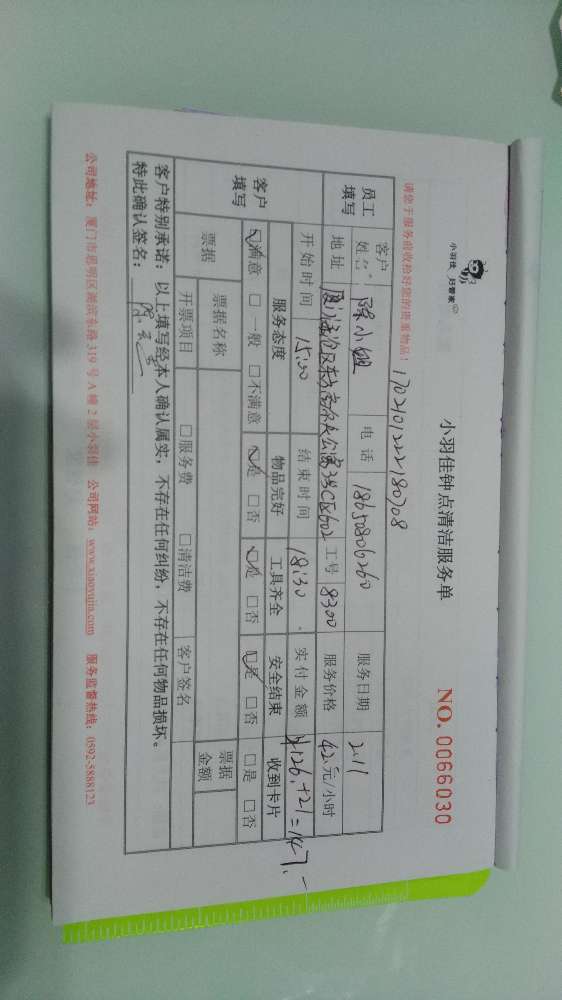 小羽佳 好管家
小羽佳钟点清洁服务单
NO. 0066030
请您于服务前收检好您的贵重物品！
1702101222180708
员工填写
客户姓名 陈小姐 电话 18650806260 服务日期 2.11
地址 工号 8300 服务价格 42元/小时
开始时间 15:00 结束时间 18:30. 实付金额 ¥126.+21=147.-
客户填写
服务态度 物品完好 工具齐全 安全结束 收到卡片
☑满意 □一般 □不满意 ☑是 □否 ☑是 □否 ☑是 □否 □是 □否
票据 票据名称 票据金额
开票项目 □服务费 □清洁费 客户签名
客户特别承诺：以上填写经本人确认属实，不存在任何纠纷，不存在任何物品损坏。
特此确认签名：
公司地址：厦门市思明区湖滨东路319号A幢2层小羽佳 公司网站：www.xiaoyujia.com 服务监督热线：0592-5888123